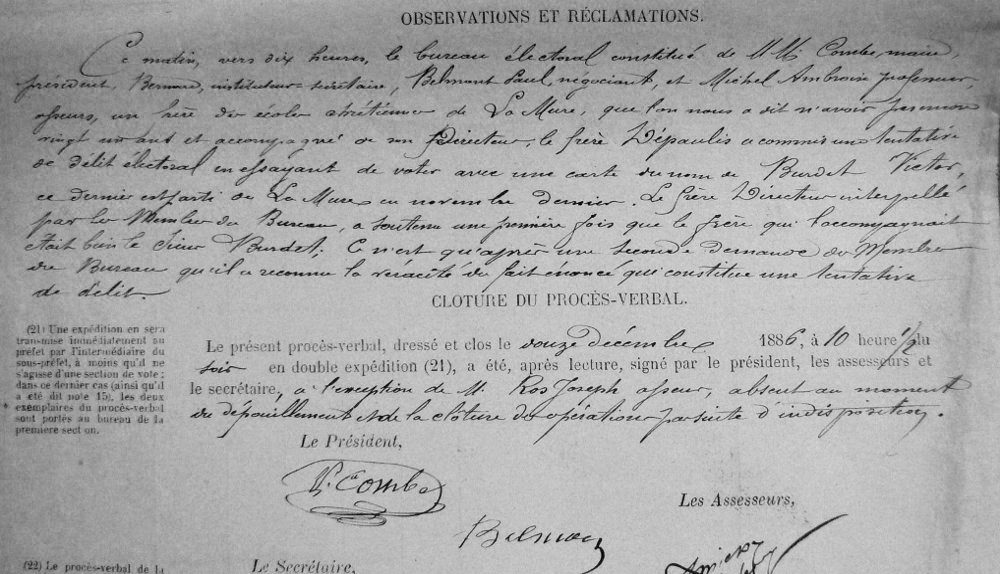 OBSERVATIONS ET RÉCLAMATIONS.
Ce matin, vers dix heures, le bureau électoral constitué de MM. Combe, maire,
président, Bernard, instituteur secrétaire, Belmont Paul, négociant, et Michel Ambroise professeur,
asseseurs, un frère des écoles chrétiennes de La Mure, que l'on nous a dit n'avoir pas encore
vingt un ans et accompagné de son Directeur, le frère Dépaulis a commis une tentative
de délit électoral en essayant de voter avec une carte du nom de Burdet Victor,
ce dernier est parti de La Mure en novembre dernier. Le frère Directeur interpellé
par les Membres du Bureau, a soutenu une première fois que le frère qui l'accompagnait
était bien le sieur Burdet; Ce n'est qu'après une seconde demande des Membres
du Bureau qu'il a reconnu la véracité du fait énoncé qui constitue une tentative
de délit.
CLOTURE DU PROCÈS-VERBAL.
(21) Une expédition en sera
transmise immédiatement au
préfet par l'intermédiaire du
sous-préfet, à moins qu'il ne
s'agisse d'une section de vote;
dans ce dernier cas (ainsi qu'il
a été dit note 15), les deux
exemplaires du procès-verbal
sont portés au bureau de la
première section.
Le présent procès-verbal, dressé et clos le douze décembre 1886, à 10 heure 1/2 du
soir en double expédition (21), a été, après lecture, signé par le président, les assesseurs et
le secrétaire, à l'exception de M. Ros Joseph asseseur, absent au moment
du dépouillement et de la clôture des opérations par suite d'indisposition.
Le Président,
Combe
Les Assesseurs,
Belmont
(22) Le procès-verbal de la
Le Secrétaire,